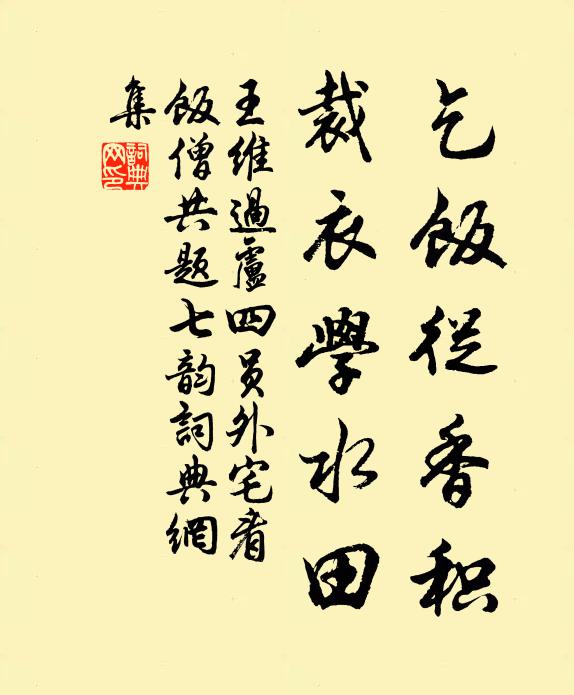 乞飯從香积
裁衣學水田
王維過盧四員外宅看
飯僧共題七韵詞典網
集
詞典
网印